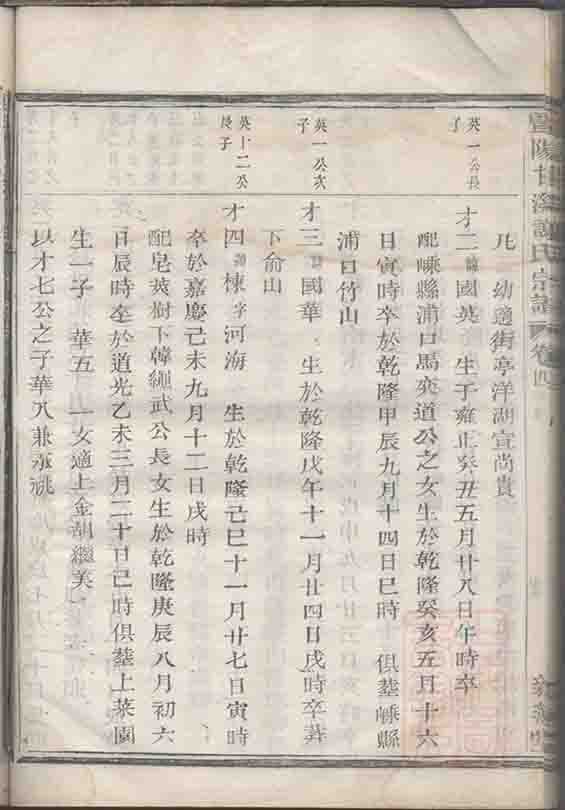 暨陽 謝氏宗譜 卷四
凡 幼適街亭洋湖宣尚貴
英一公長子
才二 諱 國英 生于雍正癸丑五月廿八日午時卒
配嵊縣浦口馬奕道公之女生於乾隆癸亥五月十六
日寅時卒於乾隆甲辰九月十四日巳時 俱塟嵊縣
浦口竹山
英一公次子
才三 諱 國華 生於乾隆戊午十一月廿四日戌時卒葬
下俞山
英十二公長子
才四 諱 棟字河海 生於乾隆己巳十一月廿七日寅時
卒於嘉慶己未九月十二日戌時
配皂莢樹下韓 武公長女生於乾隆庚辰八月初六
日辰時卒於道光乙未三月二十日己時俱塟上菜園
生一子 華五 一女適上金胡繼美
以才七公之子華八兼承祧